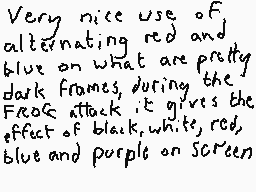 Very nice use of
alternating red and
blue on what are pretty
dark frames, during the
FROG attack it gives the
effect of black, white, red,
blue and purple on screen